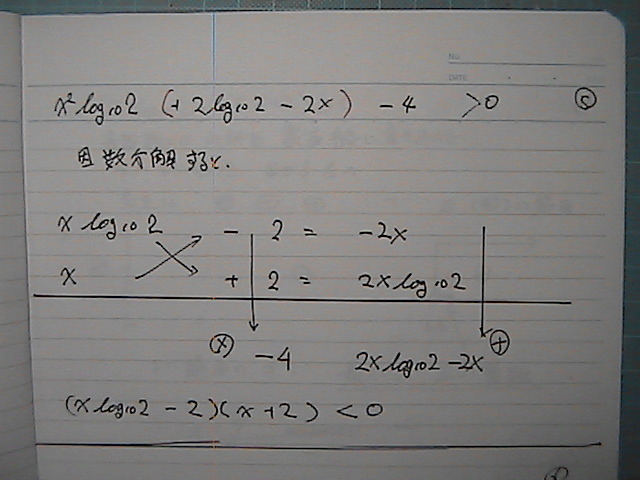 NO.
DATE
x² log₁₀2 (+ 2log₁₀2 - 2x) - 4 > 0 ⑤
因数分解すると.
x log₁₀2 - 2 = -2x
x + 2 = 2x log₁₀2
⊗ -4 2x log₁₀2 - 2x ⊕
(x log₁₀2 - 2)(x + 2) < 0